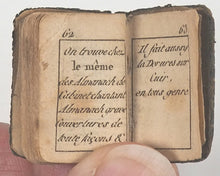 62
On trouve chez
le même
des Almanach de
Cabinet chantant
Almanach gravé
Couvertures de
toute façons &
63
Il fait aussy
la Dorures sur
Cuir,
en tous genre